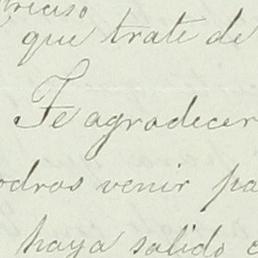 preciso
que trate de
Te agradecer
odros venir pa
haya salido e